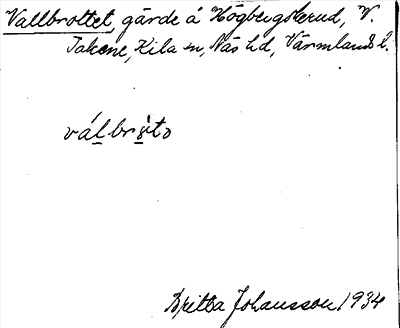 Vallbrottet, gärde å Högbergskerud, V.
Takene, Kila sn, Näs hd, Värmlands l.
Britta Johansson, 1934